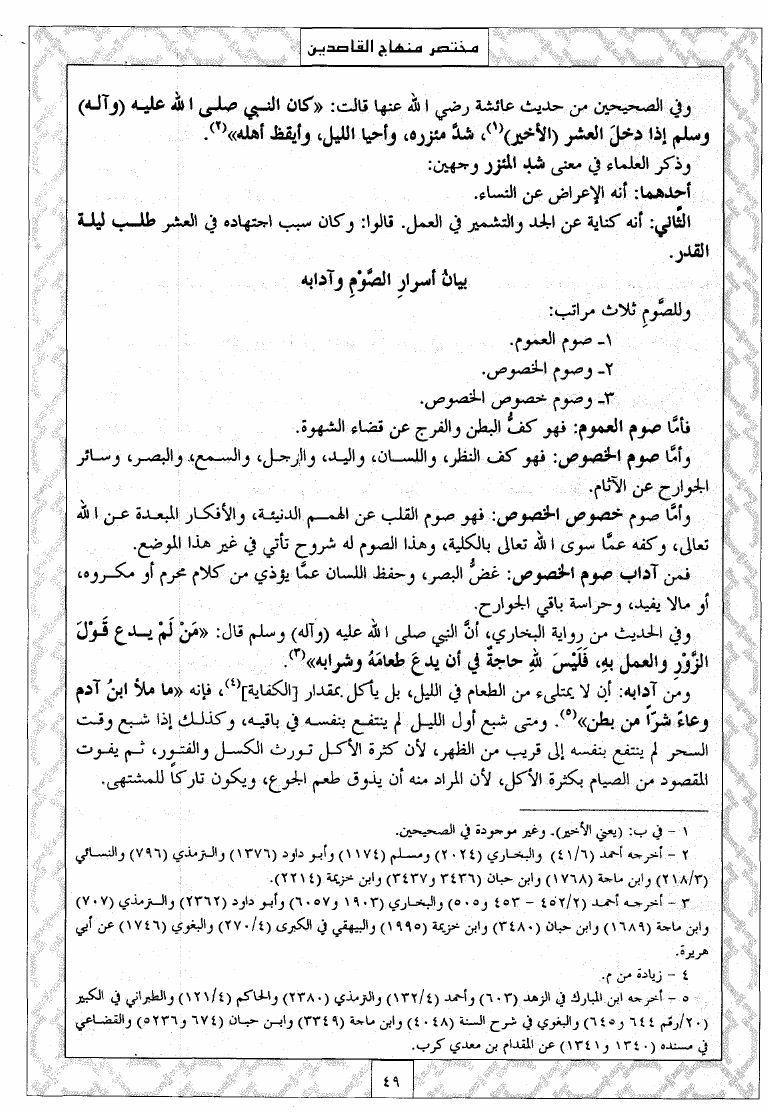 مختصر منهاج القاصدين
وفي الصحيحين من حديث عائشة رضي الله عنها قالت: «كان النبي صلى الله عليه (وآله)
وسلم إذا دخلَ العشر (الأخير)(١)، شدَّ مئزره، وأحيا الليل، وأيقظ أهله»(٢).
وذكر العلماء في معنى شدِ المئزر وجهين:
أحدهما: أنه الإعراض عن النساء.
الثَّاني: أنه كناية عن الجد والتشمير في العمل. قالوا: وكان سبب اجتهاده في العشر طلب ليلة
القدر.
بيانُ أسرارِ الصَّوْمِ وآدابه
وللصَّومِ ثلاث مراتب:
١ـ صوم العموم.
٢ـ وصوم الخصوص.
٣ـ وصوم خصوص الخصوص.
فأمَّا صوم العموم: فهو كفُّ البطن والفرج عن قضاء الشهوة.
وأمَّا صوم الخصوص: فهو كف النظر، واللسان، واليد، والرجل، والسمع، والبصر، وسائر
الجوارح عن الآثام.
وأمَّا صوم خصوص الخصوص: فهو صوم القلب عن الهمم الدنيئة، والأفكار المبعدة عن الله
تعالى، وكفه عمَّا سوى الله تعالى بالكلية، وهذا الصوم له شروح تأتي في غير هذا الموضع.
فمن آداب صوم الخصوص: غضُّ البصر، وحفظ اللسان عمَّا يؤذي من كلام محرم أو مكروه،
أو مالا يفيد، وحراسة باقي الجوارح.
وفي الحديث من رواية البخاري، أنَّ النبي صلى الله عليه (وآله) وسلم قال: «مَنْ لَمْ يدع قَوْلَ
الزُّوْرِ والعمل بهِ، فَلَيْسَ للهِ حاجةٌ في أن يدعَ طعامَهُ وشرابه»(٣).
ومن آدابه: أن لا يمتلىء من الطعام في الليل، بل يأكل بمقدار [الكفاية](٤)، فإنه «ما ملأ ابنُ آدم
وعاءً شرّاً من بطن»(٥). ومتى شبع أول الليل لم ينتفع بنفسه في باقيه، وكذلك إذا شبع وقت
السحر لم ينتفع بنفسه إلى قريب من الظهر، لأن كثرة الأكل تورث الكسل والفتور، ثم يفوت
المقصود من الصيام بكثرة الأكل، لأن المراد منه أن يذوق طعم الجوع، ويكون تاركاً للمشتهى.
١ - في ب: (يعني الأخير). وغير موجودة في الصحيحين.
٢ - أخرجه أحمد (٤١/٦) والبخاري (٢٠٢٤) ومسلم (١١٧٤) وأبو داود (١٣٧٦) والترمذي (٧٩٦) والنسائي
(٢١٨/٣) وابن ماجة (١٧٦٨) وابن حبان (٣٤٣٦ و٣٤٣٧) وابن خزيمة (٢٢١٤).
٣ - أخرجه أحمد (٤٥٢/٢ - ٤٥٣ و٥٠٥) والبخاري (١٩٠٣ و٦٠٥٧) وأبو داود (٢٣٦٢) والترمذي (٧٠٧)
وابن ماجة (١٦٨٩) وابن حبان (٣٤٨٠) وابن خزيمة (١٩٩٥) والبيهقي في الكبرى (٢٧٠/٤) والبغوي (١٧٤٦) عن أبي
هريرة.
٤ - زيادة من م.
٥ - أخرجه ابن المبارك في الزهد (٦٠٣) وأحمد (١٣٢/٤) والترمذي (٢٣٨٠) والحاكم (١٢١/٤) والطبراني في الكبير
(٢٠/رقم ٦٤٤ و٦٤٥) والبغوي في شرح السنة (٤٠٤٨) وابن ماجة (٣٣٤٩) وابن حبان (٦٧٤ و٥٢٣٦) والقضاعي
في مسنده (١٣٤٠ و١٣٤١) عن المقدام بن معدي كرب.
٤٩